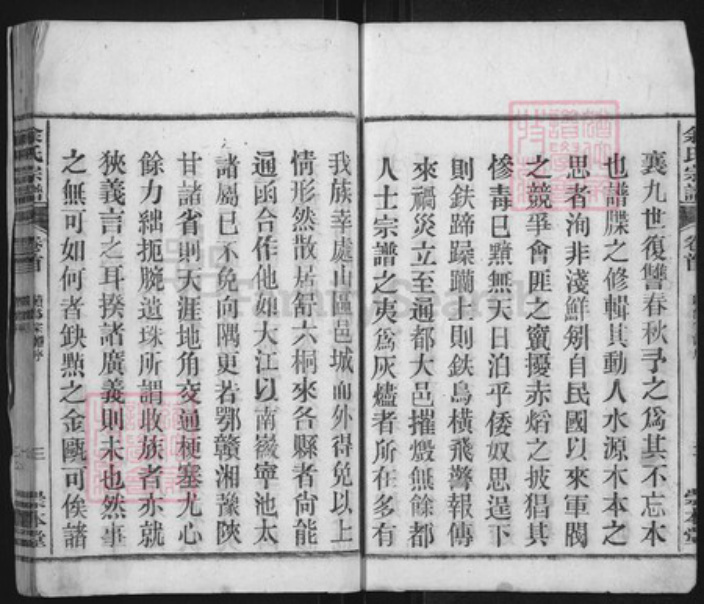 襄九世復讐春秋予之為其不忘本
也譜牒之修輯其動人水源木本之
思者洵非淺鮮矧自民國以來軍閥
之競爭會匪之竄擾赤熖之披猖其
慘毒已黯無天日洎乎倭奴思逞下
則鉄蹄蹂躪上則鉄鳥橫飛警報傳
來禍災立至通都大邑摧燬無餘都
人士宗譜之夷為灰燼者所在多有
我族幸處山區邑城而外得免以上
情形然散居舒六桐來各縣者尙能
通函合作他如大江以南徽寧池太
諸屬已不免向隅更若鄂贛湘豫陝
甘諸省則天涯地角交通梗塞尤心
餘力絀扼腕遺珠所謂收族者亦就
狹義言之耳揆諸廣義則未也然事
之無可如何者缺㸃之金甌可俟諸
余氏宗譜
卷首
崇本堂
余氏宗譜
卷首
三
崇本堂
FamilySearch